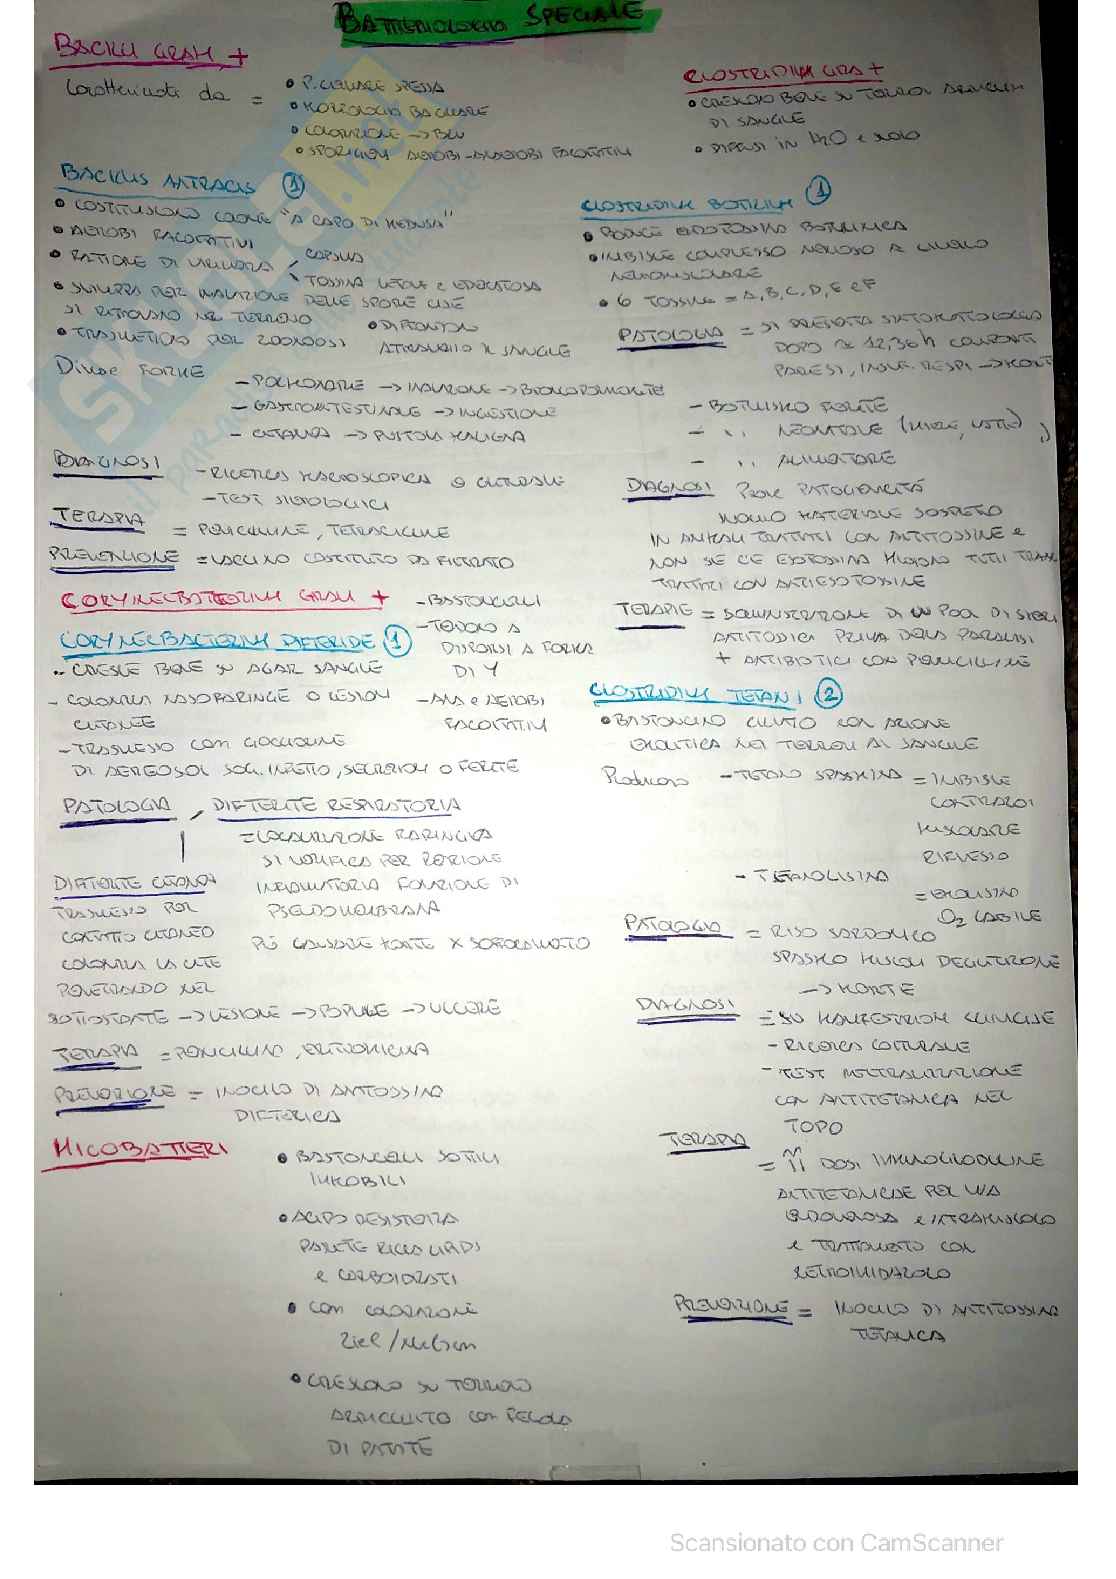 BATTERIOLOGIA SPECIALE
BACILLI GRAM +
Caratterizzati da =
• P. CELLULARE SPESSA
• MORFOLOGIA BACILLARE
• COLORAZIONE → BLU
• SPORIGENI AEROBI-ANAEROBI FACOLTATIVI
BACILLUS ANTRACIS 1
• COSTITUISCONO COLONIE "A CAPO DI MEDUSA"
• AEROBI FACOLTATIVI
• FATTORE DI VIRULENZA
CAPSULA
TOSSINA LETALE E EDEMATOSA
• SVILUPPA PER INALAZIONE DELLE SPORE CHE
SI RITROVANO NEL TERRENO
• TRASMETTONO PER ZOONOSI
• DIFFONDONO
ATTRAVERSO IL SANGUE
Diverse FORME
- POLMONARE → INALAZIONE → BRONCOPOLMONITE
- GASTROINTESTINALE → INGESTIONE
- CUTANEA → PUSTOLA MALIGNA
DIAGNOSI
- RICERCA MACROSCOPICA O CULTURALE
- TEST SIEROLOGICI
TERAPIA = PENICILLINE, TETRACICLINE
PREVENZIONE = VACCINO COSTITUITO DA FILTRATO
CORYNECBATTERIUM GRAM +
- BASTONCELLI
- TENDONO A
DISPORSI A FORMA
DI Y
- ANA e AEROBI
FACOLTATIVI
CORYNECBACTERIUM DIFTERIDE 1
- CRESCE BENE SU AGAR SANGUE
- COLONIZZA NASOFARINGE O LESIONI
CUTANEE
- TRASMESSO con GOCCIOLINE
DI AEREOSOL SOG. INFETTO, SECREZIONI O FERITE
PATOLOGIA, DIFTERITE RESPIRATORIA
= LOCALIZZAZIONE FARINGEA
SI VERIFICA PER REAZIONE
INFIAMMATORIA FORMAZIONE DI
PSEUDOMEMBRANA
PUÒ CAUSARE MORTE X SOFFOCAMENTO
DIFTERITE CUTANEA
TRASMESSO PER
CONTATTO CUTANEO
COLONIZZA LA CUTE
PENETRANDO NEL
SOTTOSTANTE → LESIONE → PAPULE → ULCERE
TERAPIA = PENICILLINA, ERITROMICINA
PREVENZIONE = INOCULO DI ANTITOSSINA
DIFTERICA
MICOBATTERI
• BASTONCELLI SOTTILI
IMMOBILI
• ACIDO RESISTENZA
PARETE RICCA LIPIDI
e CARBOIDRATI
• con COLORAZIONE
Ziel/Nelson
• CRESCONO SU TERRENO
ARRICCHITO con FECOLA
DI PATATE
CLOSTRIDIUM GRA +
• CRESCONO BENE SU TERRENI ARRICCHITI
DI SANGUE
• DIFFUSI in H2O e suolo
CLOSTRIDIUM BOTULIUM 1
• PRODUCE ESOTOSSINA BOTULINICA
• INIBISCE COMPLESSO NERVOSO A LIVELLO
NEUROMUSCOLARE
• 6 TOSSINE = A, B, C, D, E e F
PATOLOGIA = SI PRESENTA SINTOMATOLOGIA
DOPO ≈ 12,36h CON
PARESI, INSUF. RESPI → MORTE
- BOTULISMO FERITE
- " NEONATALE (MIELE, LATTE)
- " ALIMENTARE
DIAGNOSI Prove PATOGENICITÀ
INOCULO MATERIALE SOSPETTO
IN ANIMALI TRATTATI CON ANTITOSSINE e
NON SE C'E ESOTOSSINA MUOIONO TUTTI TRANNE
TRATTATI CON ANTIESOTOSSINE
TERAPIE = SOMMINISTRAZIONE DI UN POOL DI SIERI
ANTITOSSICI PRIMA DELLA PARALISI
+ ANTIBIOTICI CON PENICILLINE
CLOSTRIDIUM TETANI 2
• BASTONCINO CILIATO CON AZIONE
EMOLITICA NEI TERRENI AL SANGUE
Producono - TETANO SPASMINA = INIBISCE
CONTRAZIONI
MUSCOLARE
RIFLESSO
- TETANOLISINA
= EMOLISINA
O2 LABILE
PATOLOGIA = RISO SARDONICO
SPASMO MUSCOLI DEGLUTIZIONE
→ MORTE
DIAGNOSI = SU MANIFESTAZIONI CLINICHE
- RICERCA COLTURALE
- TEST NEUTRALIZZAZIONE
CON ANTITETANICA NEL
TOPO
TERAPIA
= DOSI IMMUNOGLOBULINE
ANTITETANICHE PER VIA
ENDOVENOSA e INTRAMUSCOLO
e TRATTAMENTO CON
METRONIDAZOLO
PREVENZIONE = INOCULO DI ANTITOSSINA
TETANICA
Scansionato con CamScanner